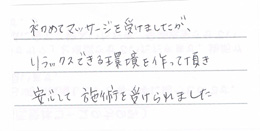 初めてマッサージを受けましたが、
リラックスできる環境を作って頂き
安心して施術を受けられました